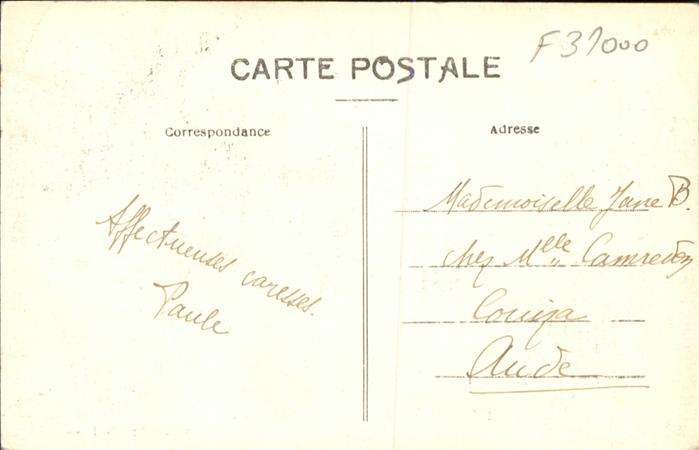 F 31000
CARTE POSTALE
Correspondance
Adresse
Affectueuses caresses.
Paule
Mademoiselle Jane B.
chez Mlle
Couiza
Aude